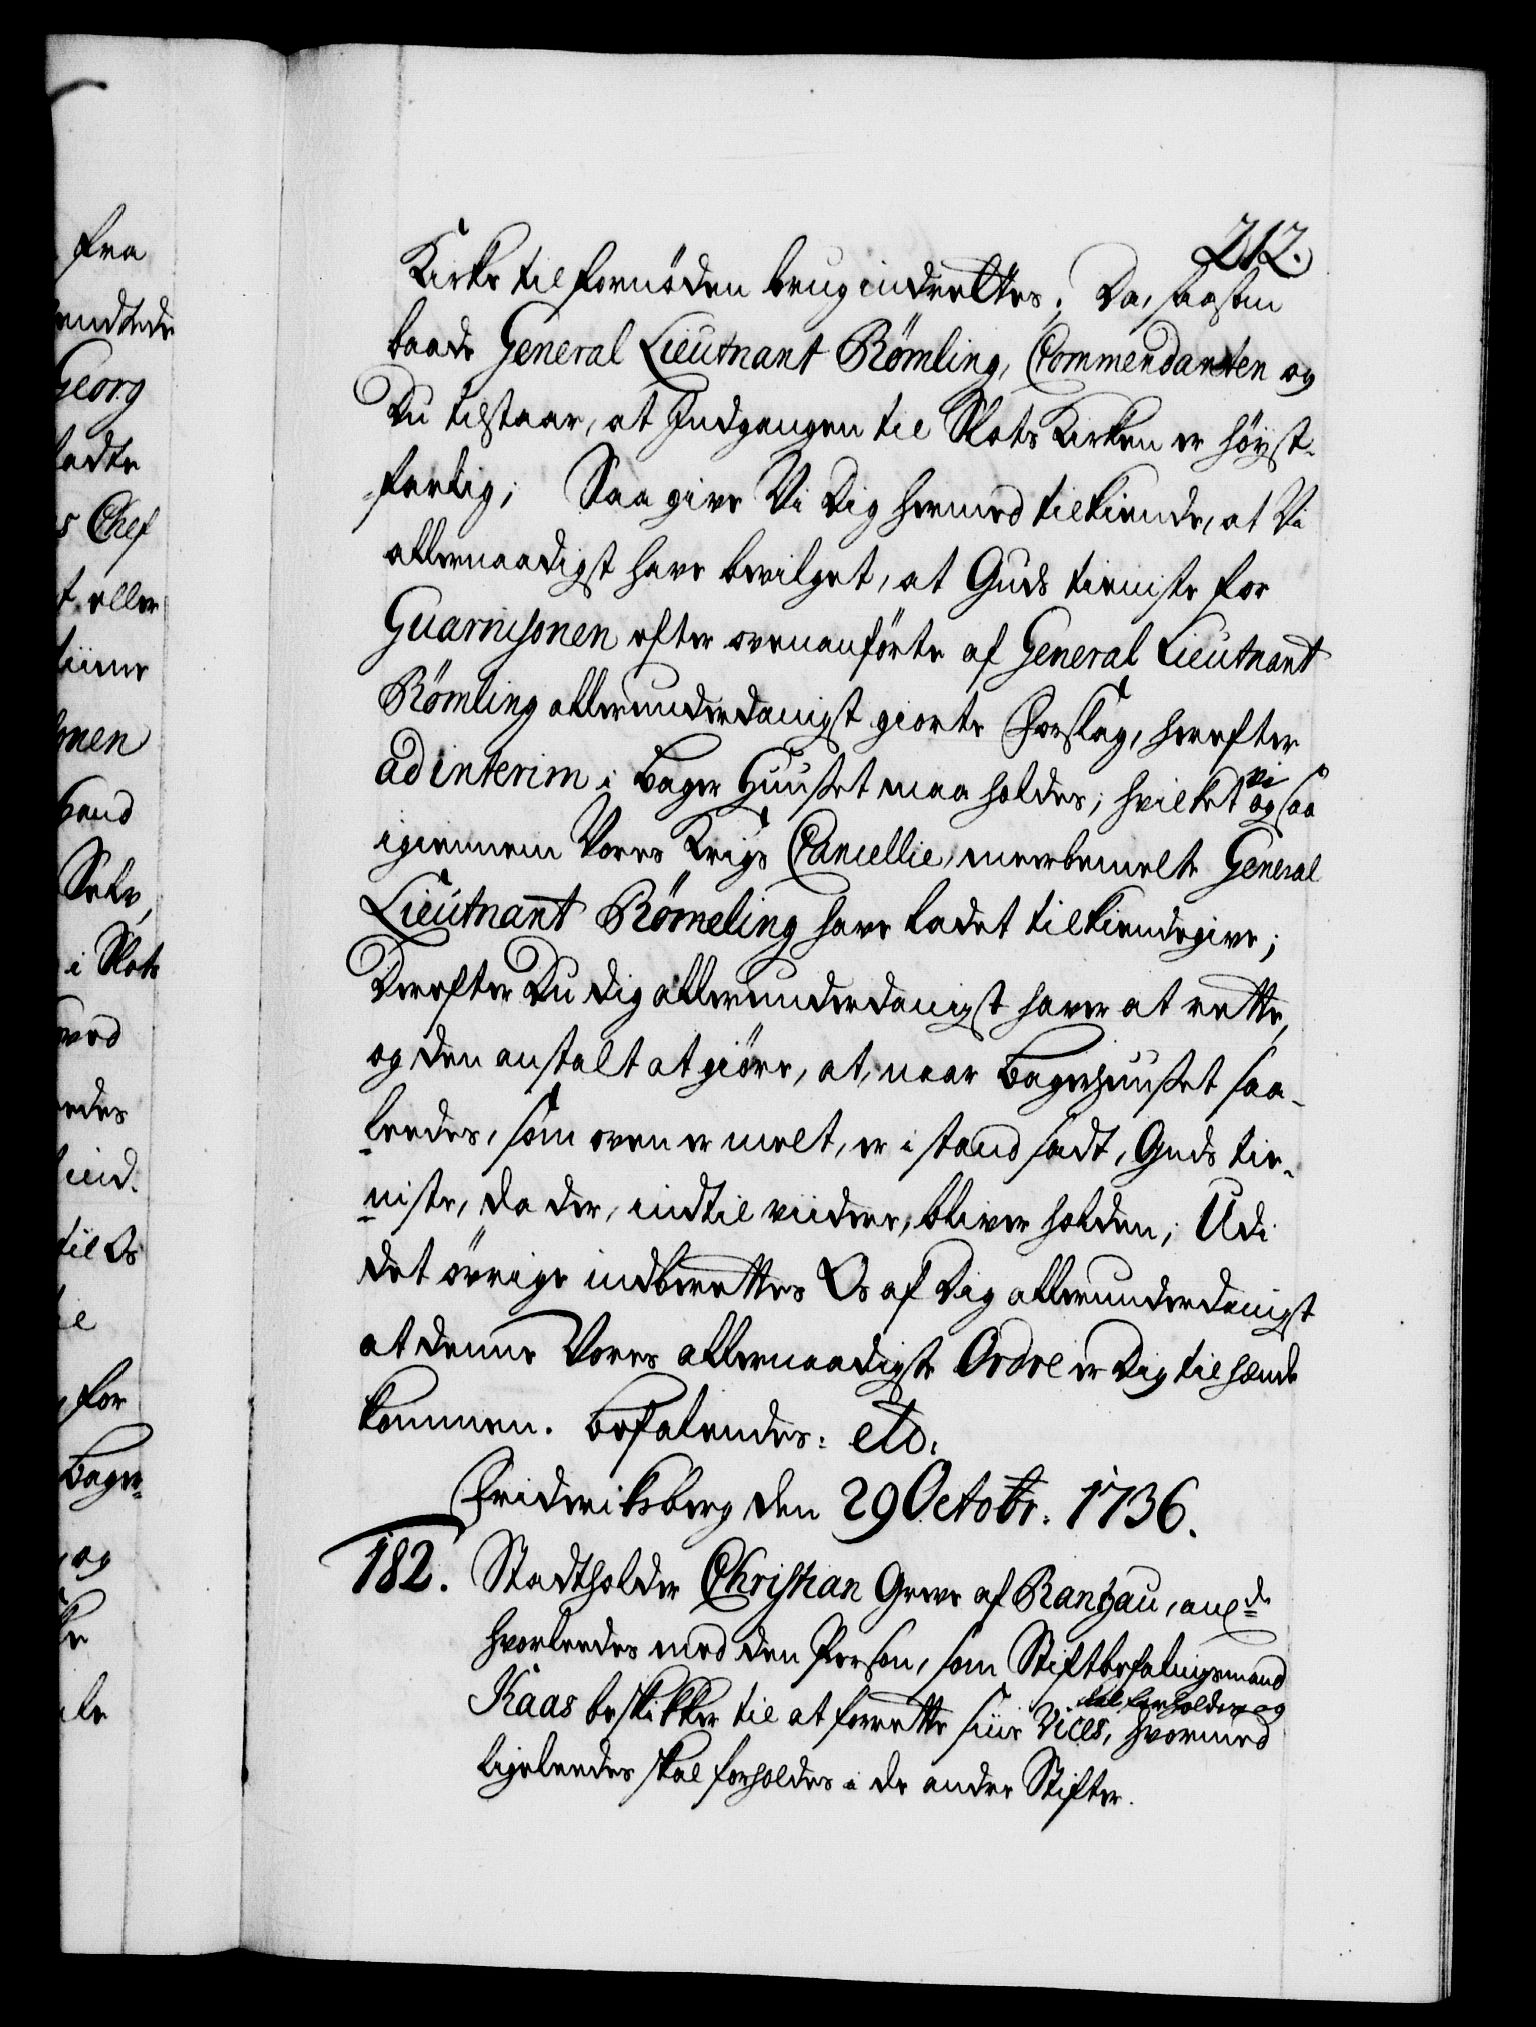 212.
Kirke til fornöden brug indrettes; Da, saasom
baade General Lieutnant Römling, Commendanten og
Du tilstaar, at Indgangen til Slots Kirken er höyst-
farlig; Saa give Vi Dig hermed tilkiende, at Vi
allernaadigst have bevilget, at Guds tieniste for
Guarnisonen efter ovenanförte af General Lieutnant
Römling allerunderdanigst giorte Forslag, herefter
ad interim i Bager Huuset maa holdes; hvilket vi og saa
igiennem Vores Krigs Cancellie, meerbemelte General
Lieutnant Römeling have ladet tilkiendegive;
Derefter Du dig allerunderdanigst haver at rette,
og den anstalt at giöre, at, naar Bagerhuuset saa-
leedes, som oven er melt, er i stand sadt, Guds tie-
niste, da der, indtil viidere, bliver holden; Udi
det övrige indberettes Os af Dig allerunderdanigst
at denne Vores allernaadigste Ordre er Dig tilhænde
kommen. Befalendes: etc:
Friderichsberg den 29 Octobr. 1736.
182. Stadtholder Christian Greve af Rantzau, ang de
hvorleedes med den Person, som Stiftbefalingsmand
Kaas beskikker til at forrette siine Vices, skal forholdes og hvormed
ligeleedes skal forholdes i de andre Stifter.
fra
endtede
Georg
ladte
s Chef
t eller
tiene
onen
haud
Selv,
i Slots
ved
eedes
til Os
for
Bager-
og